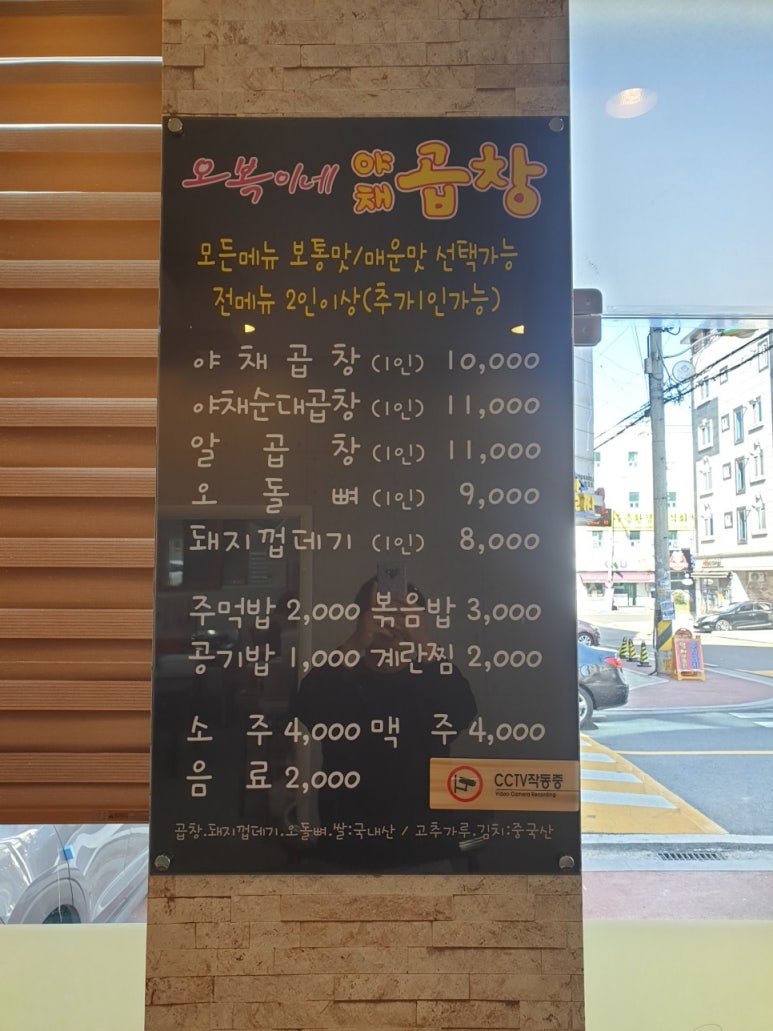 오복이네 야채곱창
모든메뉴 보통맛/매운맛 선택가능
전메뉴 2인이상(추가1인가능)
야 채 곱 창 (1인) 10,000
야채순대곱창 (1인) 11,000
알 곱 창 (1인) 11,000
오 돌 뼈 (1인) 9,000
돼지껍데기 (1인) 8,000
주먹밥 2,000 볶음밥 3,000
공기밥 1,000 계란찜 2,000
소 주 4,000 맥 주 4,000
음 료 2,000
CCTV작동중
Video Camera Recording
곱창.돼지껍데기.오돌뼈.쌀:국내산 / 고추가루.김치:중국산